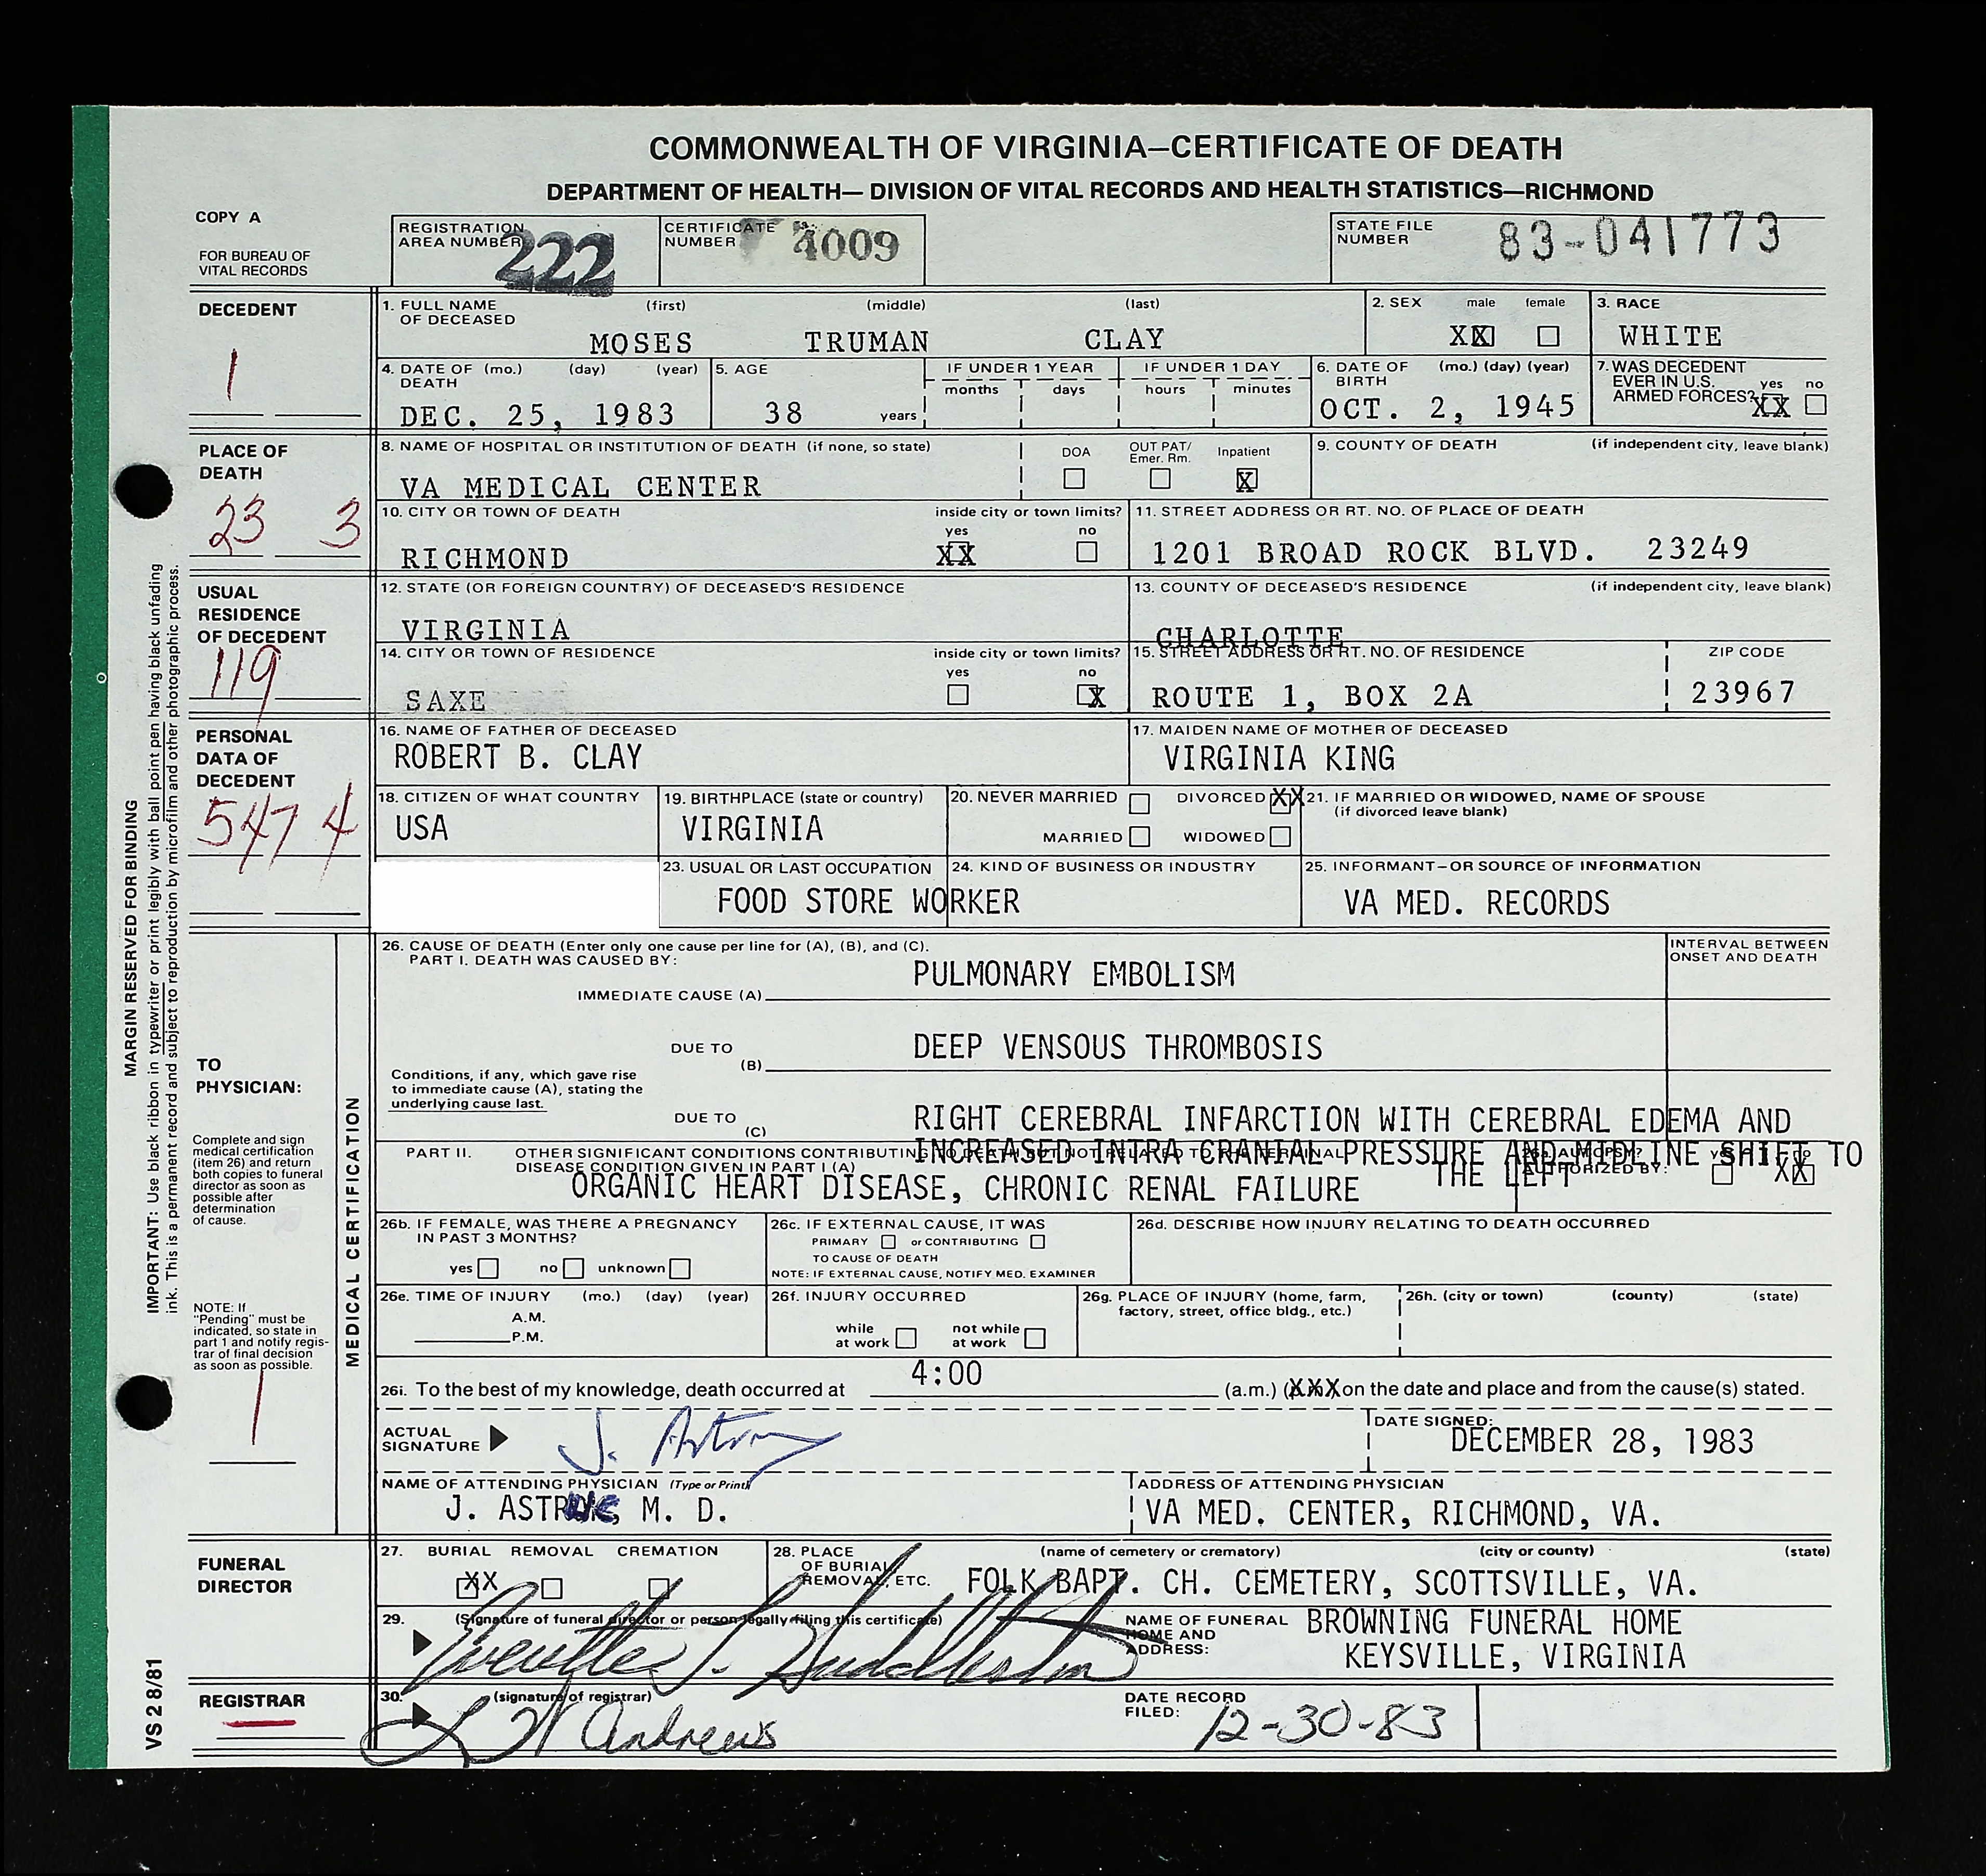 COMMONWEALTH OF VIRGINIA—CERTIFICATE OF DEATH
DEPARTMENT OF HEALTH— DIVISION OF VITAL RECORDS AND HEALTH STATISTICS—RICHMOND
COPY A
FOR BUREAU OF
VITAL RECORDS
REGISTRATION
AREA NUMBER 222
CERTIFICATE
NUMBER 4009
STATE FILE
NUMBER 83-041773
DECEDENT
1
1. FULL NAME (first) (middle) (last)
OF DECEASED
MOSES TRUMAN CLAY
2. SEX male female
XX
3. RACE
WHITE
4. DATE OF (mo.) (day) (year)
DEATH
DEC. 25, 1983
5. AGE
38 years
IF UNDER 1 YEAR
months days
IF UNDER 1 DAY
hours minutes
6. DATE OF (mo.) (day) (year)
BIRTH
OCT. 2, 1945
7. WAS DECEDENT
EVER IN U.S. yes no
ARMED FORCES? XX
PLACE OF
DEATH
23 3
8. NAME OF HOSPITAL OR INSTITUTION OF DEATH (if none, so state)
VA MEDICAL CENTER
DOA OUT PAT/ Inpatient
Emer. Rm.
X
9. COUNTY OF DEATH (if independent city, leave blank)
10. CITY OR TOWN OF DEATH inside city or town limits?
yes no
RICHMOND XX
11. STREET ADDRESS OR RT. NO. OF PLACE OF DEATH
1201 BROAD ROCK BLVD. 23249
USUAL
RESIDENCE
OF DECEDENT
119
12. STATE (OR FOREIGN COUNTRY) OF DECEASED'S RESIDENCE
VIRGINIA
13. COUNTY OF DECEASED'S RESIDENCE (if independent city, leave blank)
CHARLOTTE
14. CITY OR TOWN OF RESIDENCE inside city or town limits?
yes no
SAXE X
15. STREET ADDRESS OR RT. NO. OF RESIDENCE ZIP CODE
ROUTE 1, BOX 2A 23967
PERSONAL
DATA OF
DECEDENT
547 4
16. NAME OF FATHER OF DECEASED
ROBERT B. CLAY
17. MAIDEN NAME OF MOTHER OF DECEASED
VIRGINIA KING
18. CITIZEN OF WHAT COUNTRY
USA
19. BIRTHPLACE (state or country)
VIRGINIA
20. NEVER MARRIED DIVORCED XX
MARRIED WIDOWED
21. IF MARRIED OR WIDOWED, NAME OF SPOUSE
(if divorced leave blank)
23. USUAL OR LAST OCCUPATION
FOOD STORE WORKER
24. KIND OF BUSINESS OR INDUSTRY
25. INFORMANT—OR SOURCE OF INFORMATION
VA MED. RECORDS
MARGIN RESERVED FOR BINDING
IMPORTANT: Use black ribbon in typewriter or print legibly with ball point pen having black unfading
ink. This is a permanent record and subject to reproduction by microfilm and other photographic process.
TO
PHYSICIAN:
Complete and sign
medical certification
(item 26) and return
both copies to funeral
director as soon as
possible after
determination
of cause.
NOTE: If
"Pending" must be
indicated, so state in
part 1 and notify regis-
trar of final decision
as soon as possible.
1
MEDICAL CERTIFICATION
26. CAUSE OF DEATH (Enter only one cause per line for (A), (B), and (C).
PART I. DEATH WAS CAUSED BY:
INTERVAL BETWEEN
ONSET AND DEATH
PULMONARY EMBOLISM
IMMEDIATE CAUSE (A)
DEEP VENSOUS THROMBOSIS
DUE TO
(B)
Conditions, if any, which gave rise
to immediate cause (A), stating the
underlying cause last.
DUE TO
(C)
RIGHT CEREBRAL INFARCTION WITH CEREBRAL EDEMA AND
INCREASED INTRA CRANIAL PRESSURE AND MIDLINE SHIFT TO
THE LEFT
PART II. OTHER SIGNIFICANT CONDITIONS CONTRIBUTING TO DEATH BUT NOT RELATED TO THE TERMINAL
DISEASE CONDITION GIVEN IN PART I (A)
ORGANIC HEART DISEASE, CHRONIC RENAL FAILURE
26a. AUTOPSY?
AUTHORIZED BY: XX
26b. IF FEMALE, WAS THERE A PREGNANCY
IN PAST 3 MONTHS?
yes no unknown
26c. IF EXTERNAL CAUSE, IT WAS
PRIMARY or CONTRIBUTING
TO CAUSE OF DEATH
NOTE: IF EXTERNAL CAUSE, NOTIFY MED. EXAMINER
26d. DESCRIBE HOW INJURY RELATING TO DEATH OCCURRED
26e. TIME OF INJURY (mo.) (day) (year)
A.M.
P.M.
26f. INJURY OCCURRED
while not while
at work at work
26g. PLACE OF INJURY (home, farm,
factory, street, office bldg., etc.)
26h. (city or town) (county) (state)
4:00
26i. To the best of my knowledge, death occurred at (a.m.) (XXX on the date and place and from the cause(s) stated.
ACTUAL
SIGNATURE
DATE SIGNED:
DECEMBER 28, 1983
NAME OF ATTENDING PHYSICIAN (Type or Print)
J. ASTRUC, M. D.
ADDRESS OF ATTENDING PHYSICIAN
VA MED. CENTER, RICHMOND, VA.
FUNERAL
DIRECTOR
27. BURIAL REMOVAL CREMATION
XX
28. PLACE (name of cemetery or crematory) (city or county) (state)
OF BURIAL
REMOVAL, ETC.
FOLK BAPT. CH. CEMETERY, SCOTTSVILLE, VA.
29. (Signature of funeral director or person legally filing this certificate)
Everette L. Huddleston
NAME OF FUNERAL
HOME AND
ADDRESS:
BROWNING FUNERAL HOME
KEYSVILLE, VIRGINIA
REGISTRAR
30. (signature of registrar)
L W Andrews
DATE RECORD
FILED: 12-30-83
VS 2 8/81